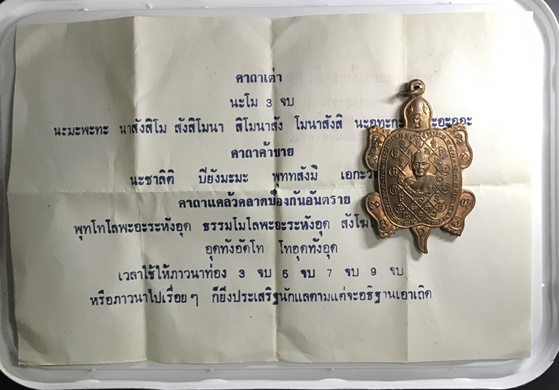 คาถาเต่า
นะโม 3 จบ
นะมะพะทะ นาสังสิโม สังสิโมนา สิโมนาสัง โมนาสังสิ นะอุทะกะ
คาถาค้าขาย
นะชาลิติ ปิยังมะมะ พุททสังมิ
คาถาแคล้วคลาดป้องกันอันตราย
พุทโทโลพะอะระหังอุด ธรรมโมโลพะอะระหังอุด
อุดทังอัดโท โทอุดทังอุด
เวลาใช้ให้ภาวนาท่อง 3 จบ 5 จบ 7 จบ 9 จบ
หรือภาวนาไปเรื่อยๆ ก็ยิ่งประเสริฐนักแลตามแต่จะอธิฐานเอาเถิด